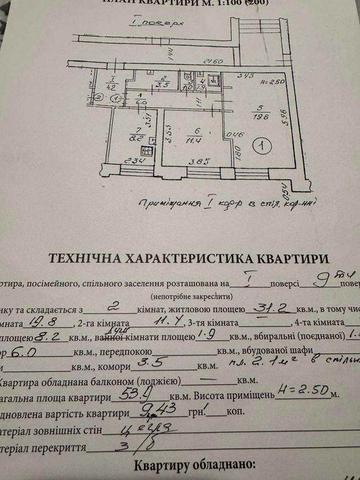 ПЛАН КВАРТИРИ М. 1:100 (200)
I поверх
1.44
2160
3.45
H=2.50
I
4.2
3.5
1
6.0
1.11
5
19.8
5.96
7
8.2
3.51
6
11.4
3.53
0.46
1.80
1
2.34
3.85
0.54
Приміщення I кор в спіл. кор-ні
ТЕХНІЧНА ХАРАКТЕРИСТИКА КВАРТИРИ
ртира, посімейного, спільного заселення розташована на I поверсі 9ти повер
(непотрібне закреслити)
нку та складається з 2 кімнат, житловою площею 31.2 кв.м., в тому чис
імната 19.8, 2-га кімната 11.4, 3-тя кімната —, 4-та кімната
площею 8.2 кв.м., ванної кімнати 1.9 кв.м., вбиральні (поєднаної) 1.
ор 6.0 кв.м., передпокою кв.м., вбудованої шафи
кв.м., комори 3.5 кв.м. пл. 2.1м² в спільн
Квартира обладнана балконом (лоджією) — кв.м.
агальна площа квартири 53.9 кв.м. Висота приміщень H=2.50 м.
дновлена вартість квартири 943 грн. коп.
атеріал зовнішніх стін цегла
атеріал перекриття з/б
Квартиру обладнано: